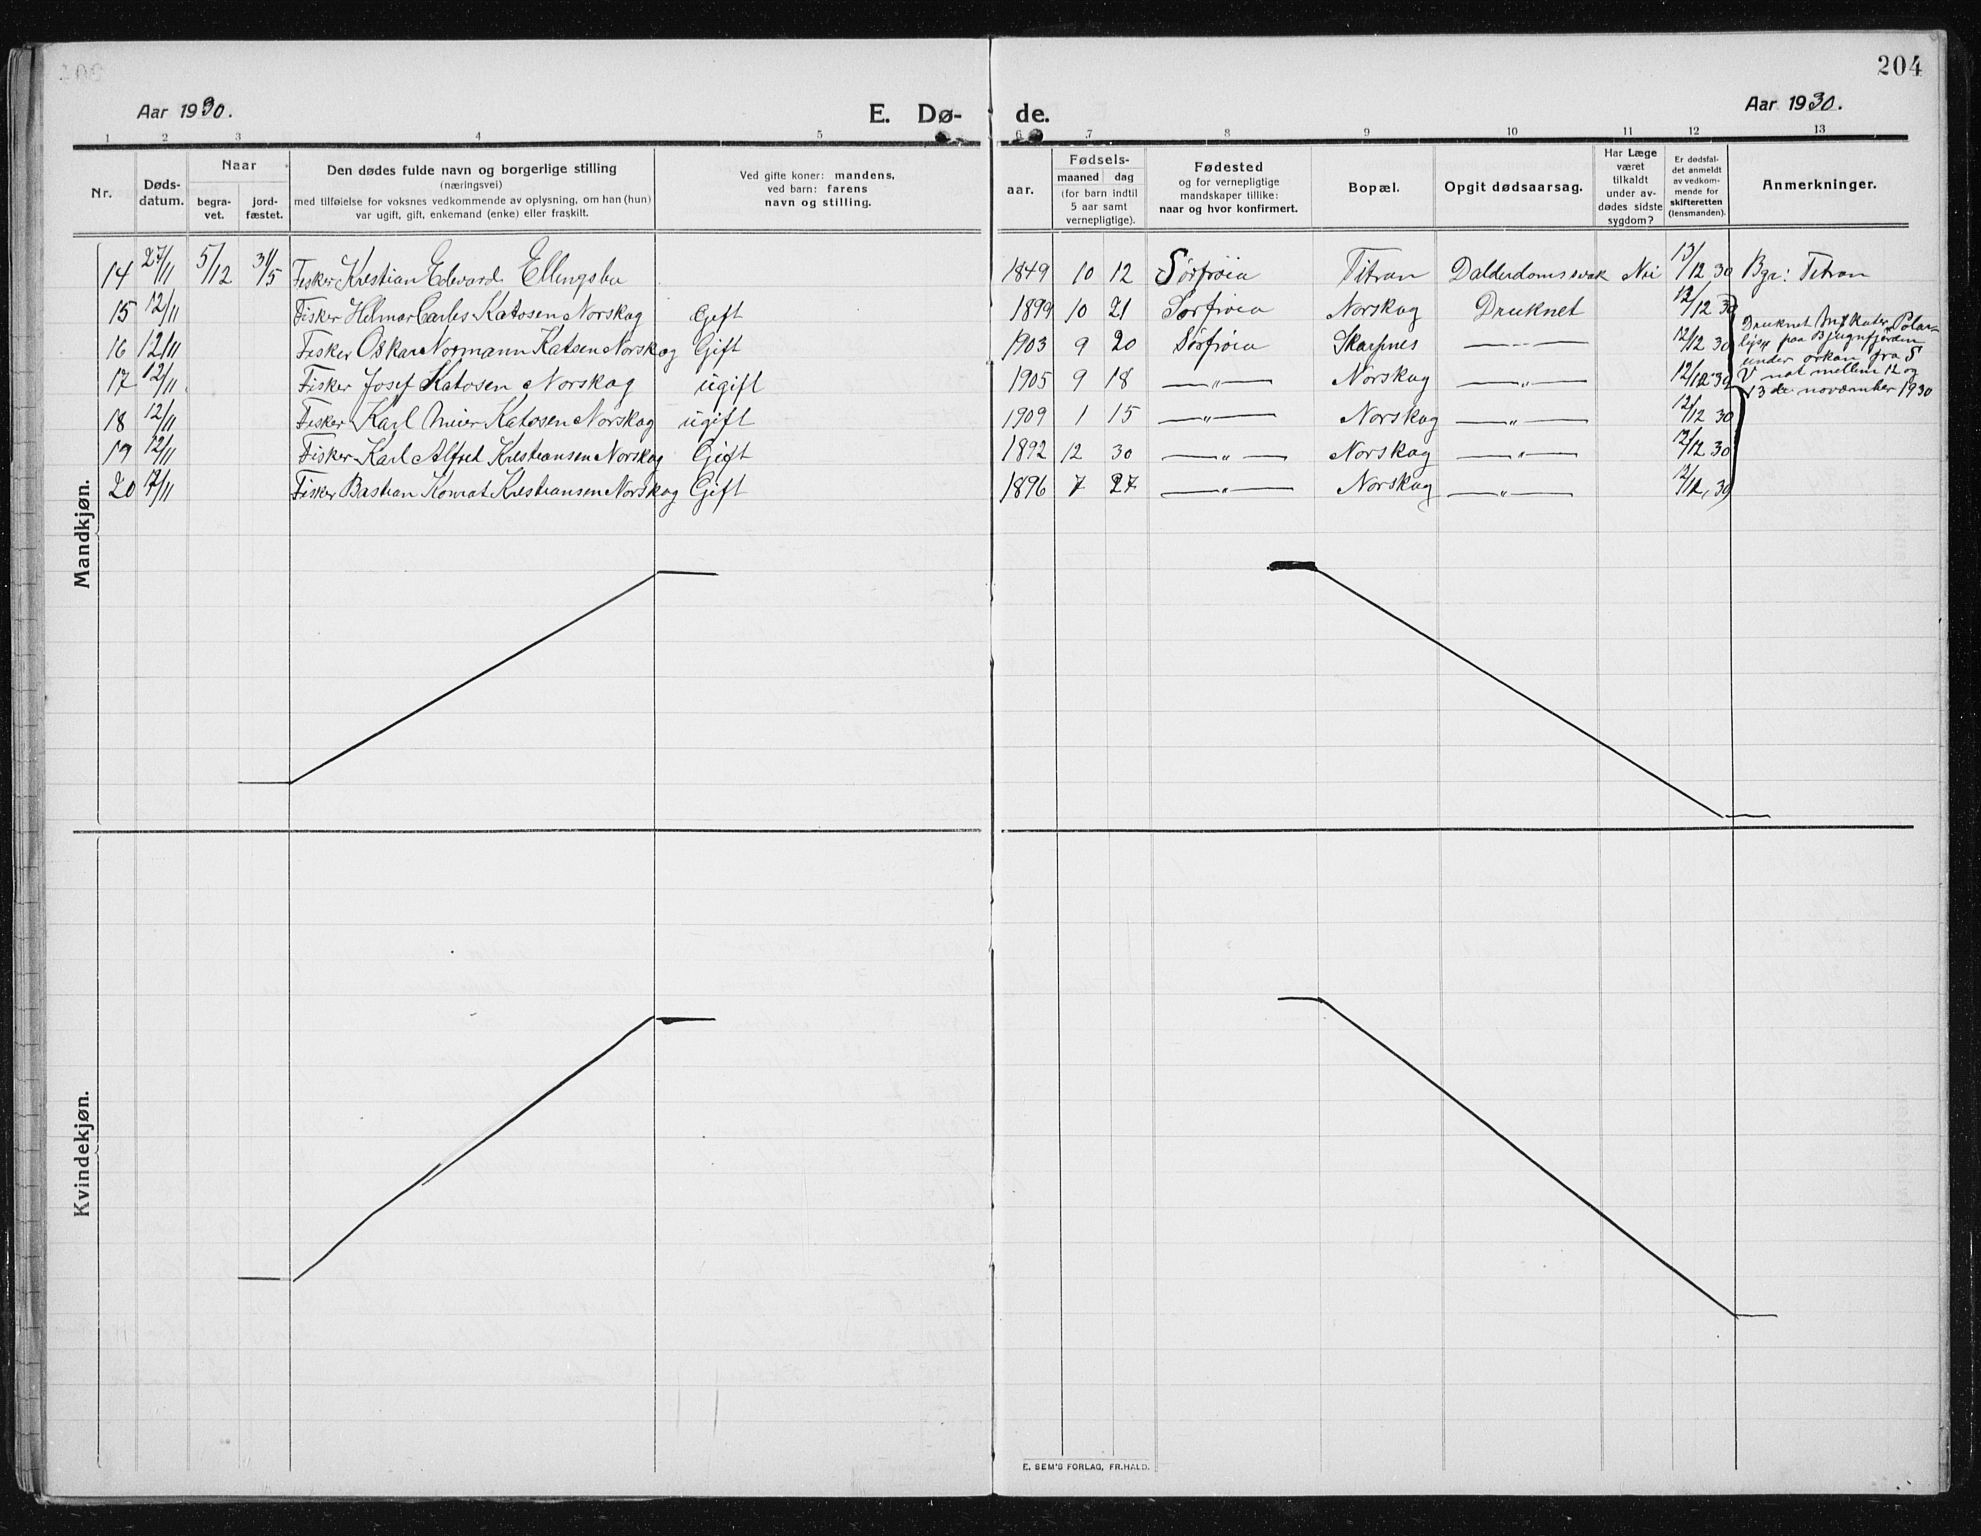 204
Aar 1930. E. Dø- de. Aar 1930.
1 2 3 4 5 6 7 8 9 10 11 12 13
Nr. Døds-datum. Naar begra-vet. jord-fæstet. Den dødes fulde navn og borgerlige stilling (næringsvei) med tilføielse for voksnes vedkommende av oplysning, om han (hun) var ugift, gift, enkemand (enke) eller fraskilt. Ved gifte koner: mandens, ved barn: farens navn og stilling. aar. Fødsels- maaned dag (for barn indtil 5 aar samt vernepligtige). Fødested og for vernepligtige mandskaper tillike: naar og hvor konfirmert. Bopæl. Opgit dødsaarsag. Har Læge været tilkaldt under av-dødes sidste sygdom? Er dødsfal-det anmeldt av vedkom-mende for skifteretten (lensmanden). Anmerkninger.
Mandkjøn.
14 27/11 5/12 31/5 Fisker Kristian Edvard Ellingsbu 1849 10 12 Sørfrøia Titran Dalderdomssvak Nei 13/12 30 Bgr: Titran
15 12/11 Fisker Hilmar Carles Katosen Norskag Gift 1899 10 21 Sørfrøia Norskag Druknet 12/12 30
16 12/11 Fisker Oskar Normann Katsen Norskag Gift 1903 9 20 Sørfrøia Skarpnes —"— 12/12 30
17 12/11 Fisker Josef Katosen Norskag ugift 1905 9 18 —"— Norskag —"— 12/12 30
18 12/11 Fisker Karl Meier Katosen Norskag ugift 1909 1 15 —"— Norskag —"— 12/12 30
19 12/11 Fisker Karl Alfred Kristiansen Norskag Gift 1892 12 30 —"— Norskag —"— 12/12 30
20 12/11 Fisker Bastian Konrat Kristiansen Norskag Gift 1896 7 27 —"— Norskag —"— 12/12, 30
Druknet M/Kuter Polar-
lys" paa Bjugnfjorden
under orkan fra S
V nat mellem 12 og
13 de november 1930
Kvindekjøn.
E. SEM'S FORLAG, FR.HALD.